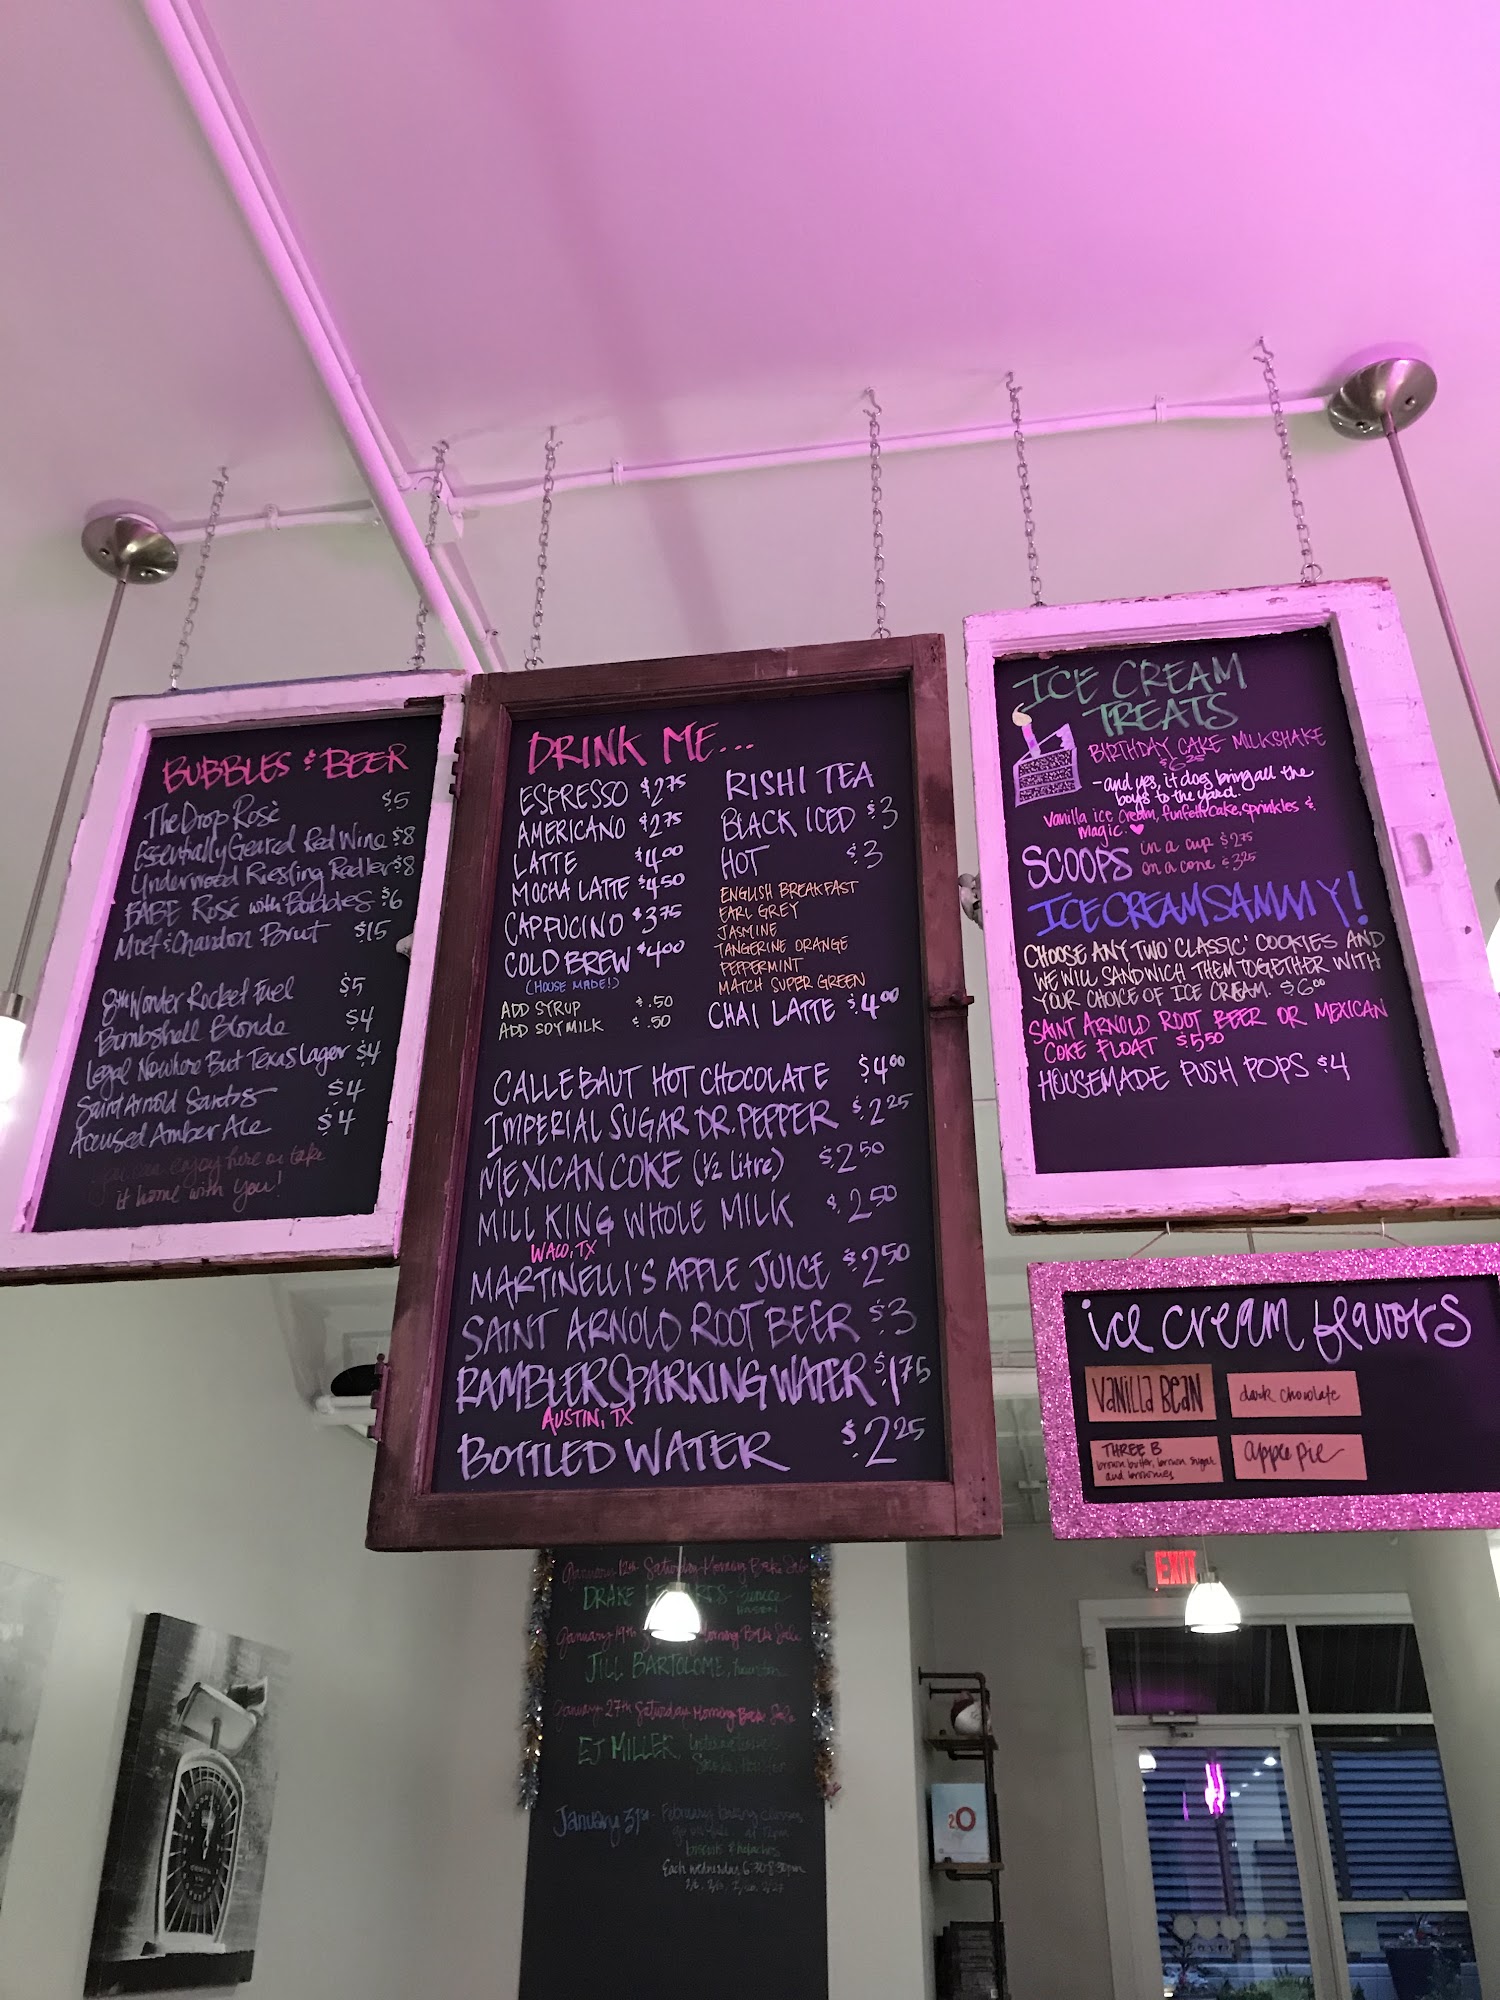 BUBBLES & BEER
The Drop Rosé $5
Essentially Geared Red Wine $8
Underwood Riesling Radler $8
BABE Rosé with Bubbles $6
Moet & Chandon Brut $15
8th Wonder Rocket Fuel $5
Bombshell Blonde $4
Legal Nowhere But Texas Lager $4
Saint Arnold Santo $4
Accused Amber Ale $4
you can enjoy here or take
it home with you!
DRINK ME...
ESPRESSO $2.75
AMERICANO $2.75
LATTE $4.00
MOCHA LATTE $4.50
CAPPUCINO $3.75
COLD BREW $4.00
(HOUSE MADE!)
ADD SYRUP $.50
ADD SOY MILK $.50
RISHI TEA
BLACK ICED $3
HOT $3
ENGLISH BREAKFAST
EARL GREY
JASMINE
TANGERINE ORANGE
PEPPERMINT
MATCH SUPER GREEN
CHAI LATTE $4.00
CALLEBAUT HOT CHOCOLATE $4.00
IMPERIAL SUGAR DR. PEPPER $2.25
MEXICAN COKE (1/2 litre) $2.50
MILL KING WHOLE MILK $2.50
WACO, TX
MARTINELLI'S APPLE JUICE $2.50
SAINT ARNOLD ROOT BEER $3
RAMBLER SPARKING WATER $1.75
AUSTIN, TX
BOTTLED WATER $2.25
ICE CREAM
TREATS
BIRTHDAY CAKE MILKSHAKE
$6.25
-and yes, it does bring all the
boys to the yard.
vanilla ice cream, funfetti cake, sprinkles &
magic. ♥
SCOOPS in a cup $2.75
on a cone $3.25
ICE CREAM SAMMY!
CHOOSE ANY TWO 'CLASSIC' COOKIES AND
WE WILL SANDWICH THEM TOGETHER WITH
YOUR CHOICE OF ICE CREAM. $6.00
SAINT ARNOLD ROOT BEER OR MEXICAN
COKE FLOAT $5.50
HOUSEMADE PUSH POPS $4
ice cream flavors
VANILLA BEAN
dark chocolate
THREE B
brown butter, brown sugar
and brownies
apple pie
EXIT
January 12th Saturday Morning Bake Sale
DRAKE
January 19th Morning Bake Sale
JILL BARTOLOME, houston
January 27th Saturday Morning Bake Sale
EJ MILLER,
January 31st - February baking classes
go on sale at
biscuits & kolaches
Each wednesday 6:30-8:30pm
20